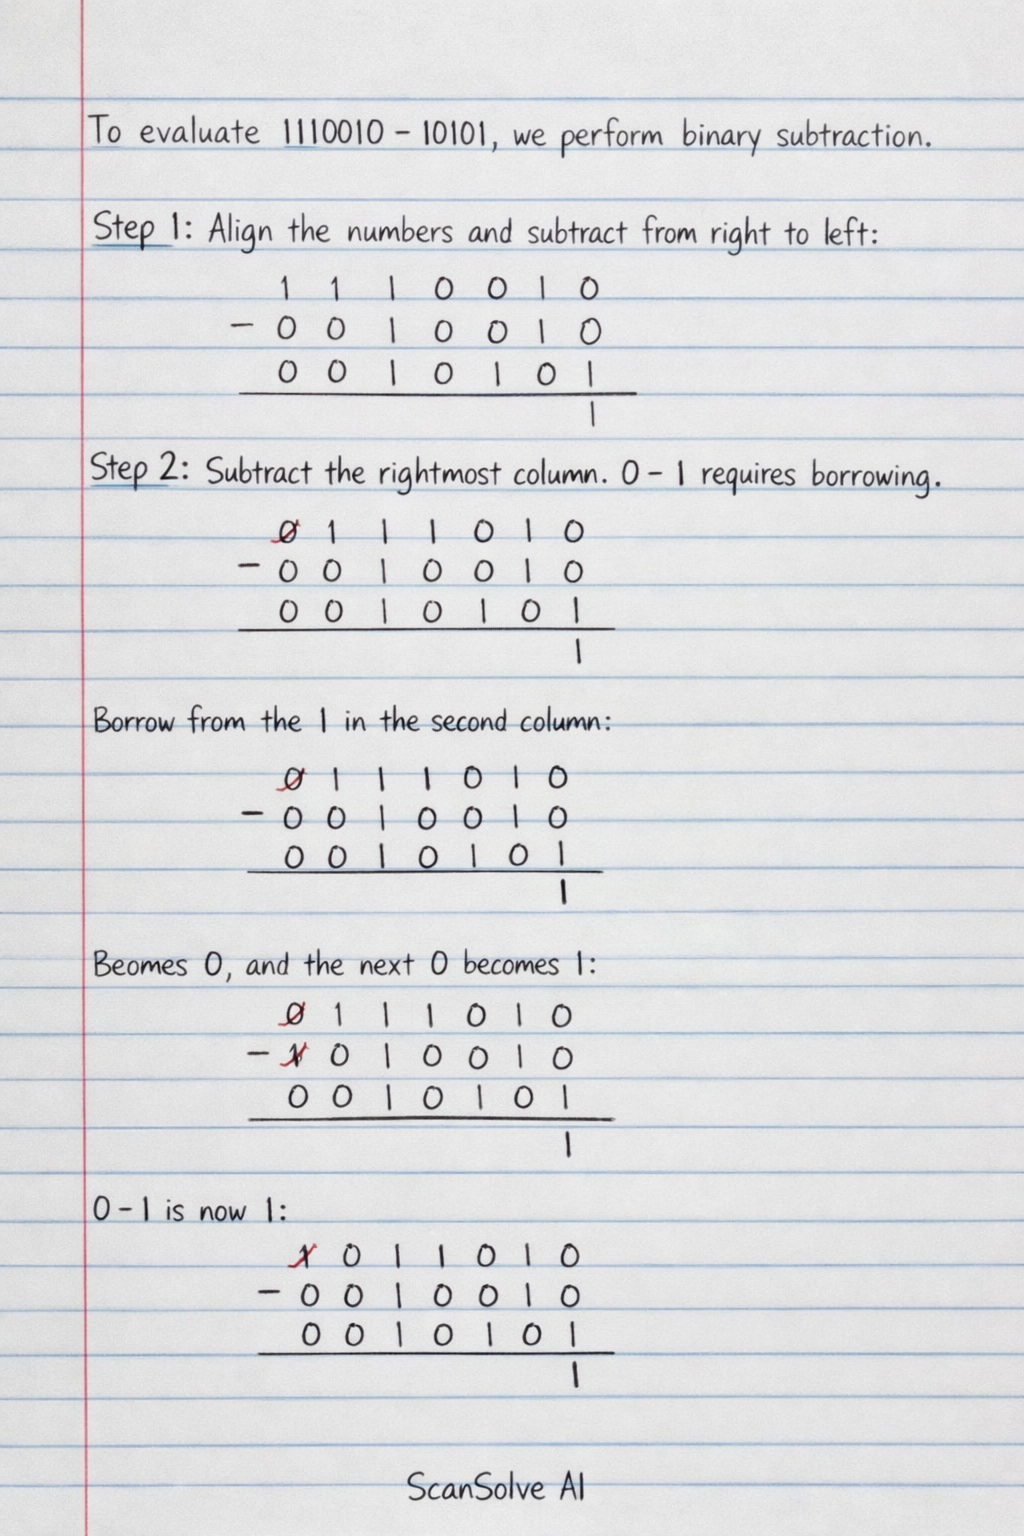 To evaluate 1110010 - 10101, we perform binary subtraction.
Step 1: Align the numbers and subtract from right to left:
1 1 1 0 0 1 0
- 0 0 1 0 0 1 0
0 0 1 0 1 0 1
1
Step 2: Subtract the rightmost column. 0 - 1 requires borrowing.
0 1 1 1 0 1 0
- 0 0 1 0 0 1 0
0 0 1 0 1 0 1
1
Borrow from the 1 in the second column:
0 1 1 1 0 1 0
- 0 0 1 0 0 1 0
0 0 1 0 1 0 1
1
Beomes 0, and the next 0 becomes 1:
0 1 1 1 0 1 0
- 1 0 1 0 0 1 0
0 0 1 0 1 0 1
1
0 - 1 is now 1:
1 0 1 1 0 1 0
- 0 0 1 0 0 1 0
0 0 1 0 1 0 1
1
ScanSolve AI